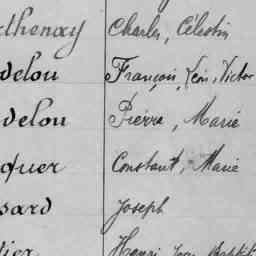 thenay Charles, Célestin
delou François, Léon, Victor
delou Pierre, Marie
quer Constant, Marie
sard Joseph
tier Henri, Jean Baptist